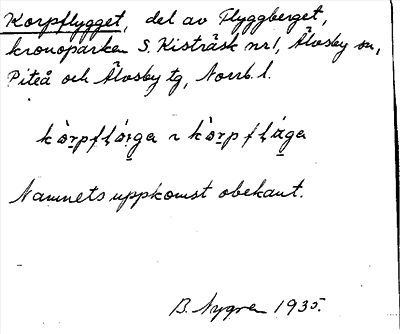 Korpflygget, del av Flyggberget,
kronoparken S. Kisträsk nr 1, Älvsby sn,
Piteå och Älvsby tg, Norrb. l.
Namnets uppkomst obekant.
B. Nygren 1935.